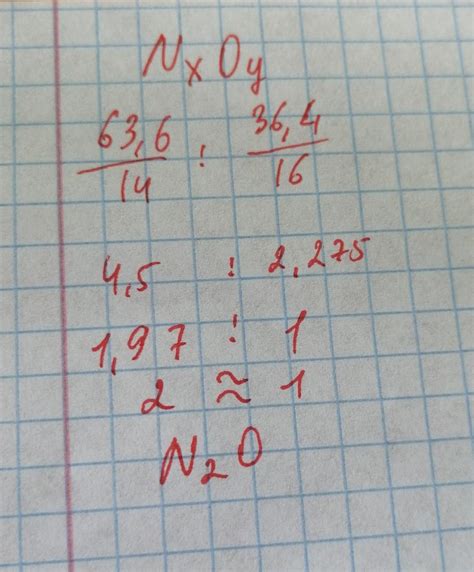 NxOy
63,6/14 : 36,4/16
4,5 : 2,275
1,97 : 1
2 ≈ 1
N₂O